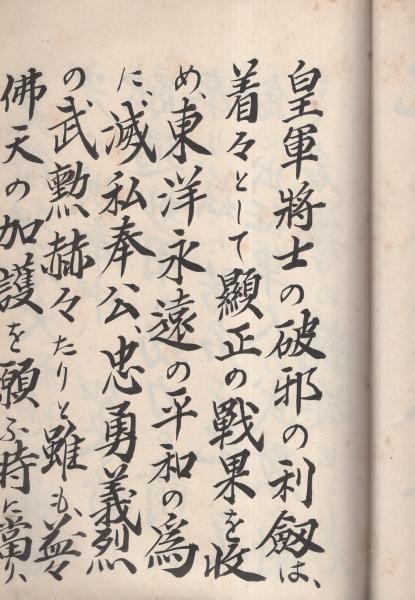 皇軍將士の破邪の利劔は、
着々として顯正の戰果を收
め、東洋永遠の平和の爲
に、滅私奉公、忠勇義烈
の武勲赫々たりと雖も、益々
佛天の加護を願ふ時に當り、